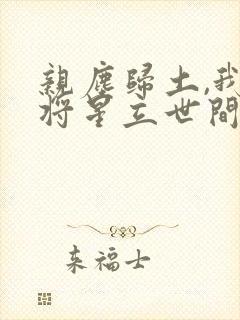 親塵歸土,我
將星立世間
来福士